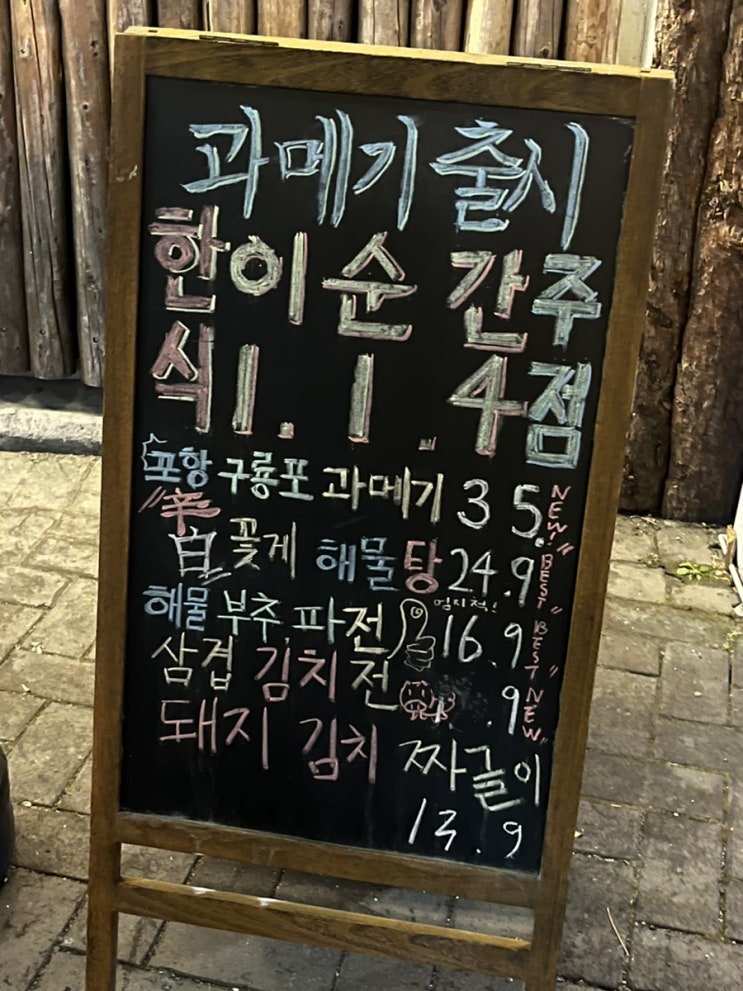 과메기 출시
한이순간주
식1.1.4점
포항 구룡포 과메기 35. NEW!
辛
白 꽃게 해물탕 24.9 BEST
해물 부추, 파전 엄지척! 16.9 BEST
삼겹 김치전 .9 NEW
돼지 김치 짜글이
13.9